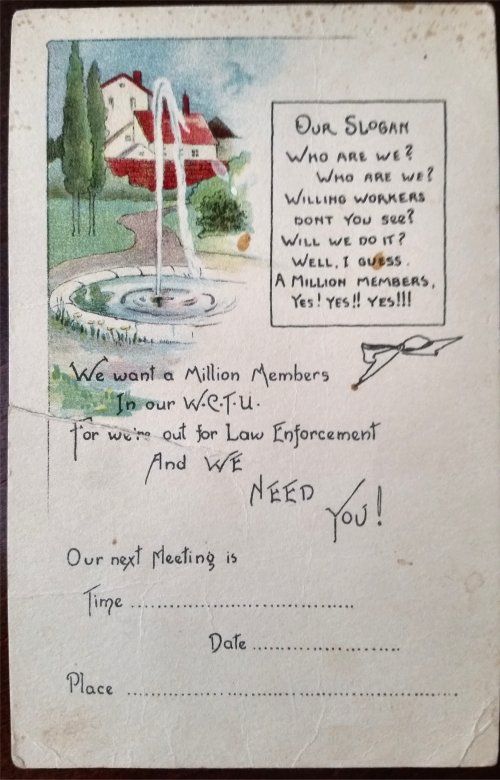 OUR SLOGAN
WHO ARE WE?
WHO ARE WE?
WILLING WORKERS
DONT YOU SEE?
WILL WE DO IT?
WELL, I GUESS.
A MILLION MEMBERS,
YES! YES!! YES!!!
We want a Million Members
In our W.C.T.U.
For we're out for Law Enforcement
And WE
NEED
YOU!
Our next Meeting is
Time ..................................
Date ......................
Place ..................................................